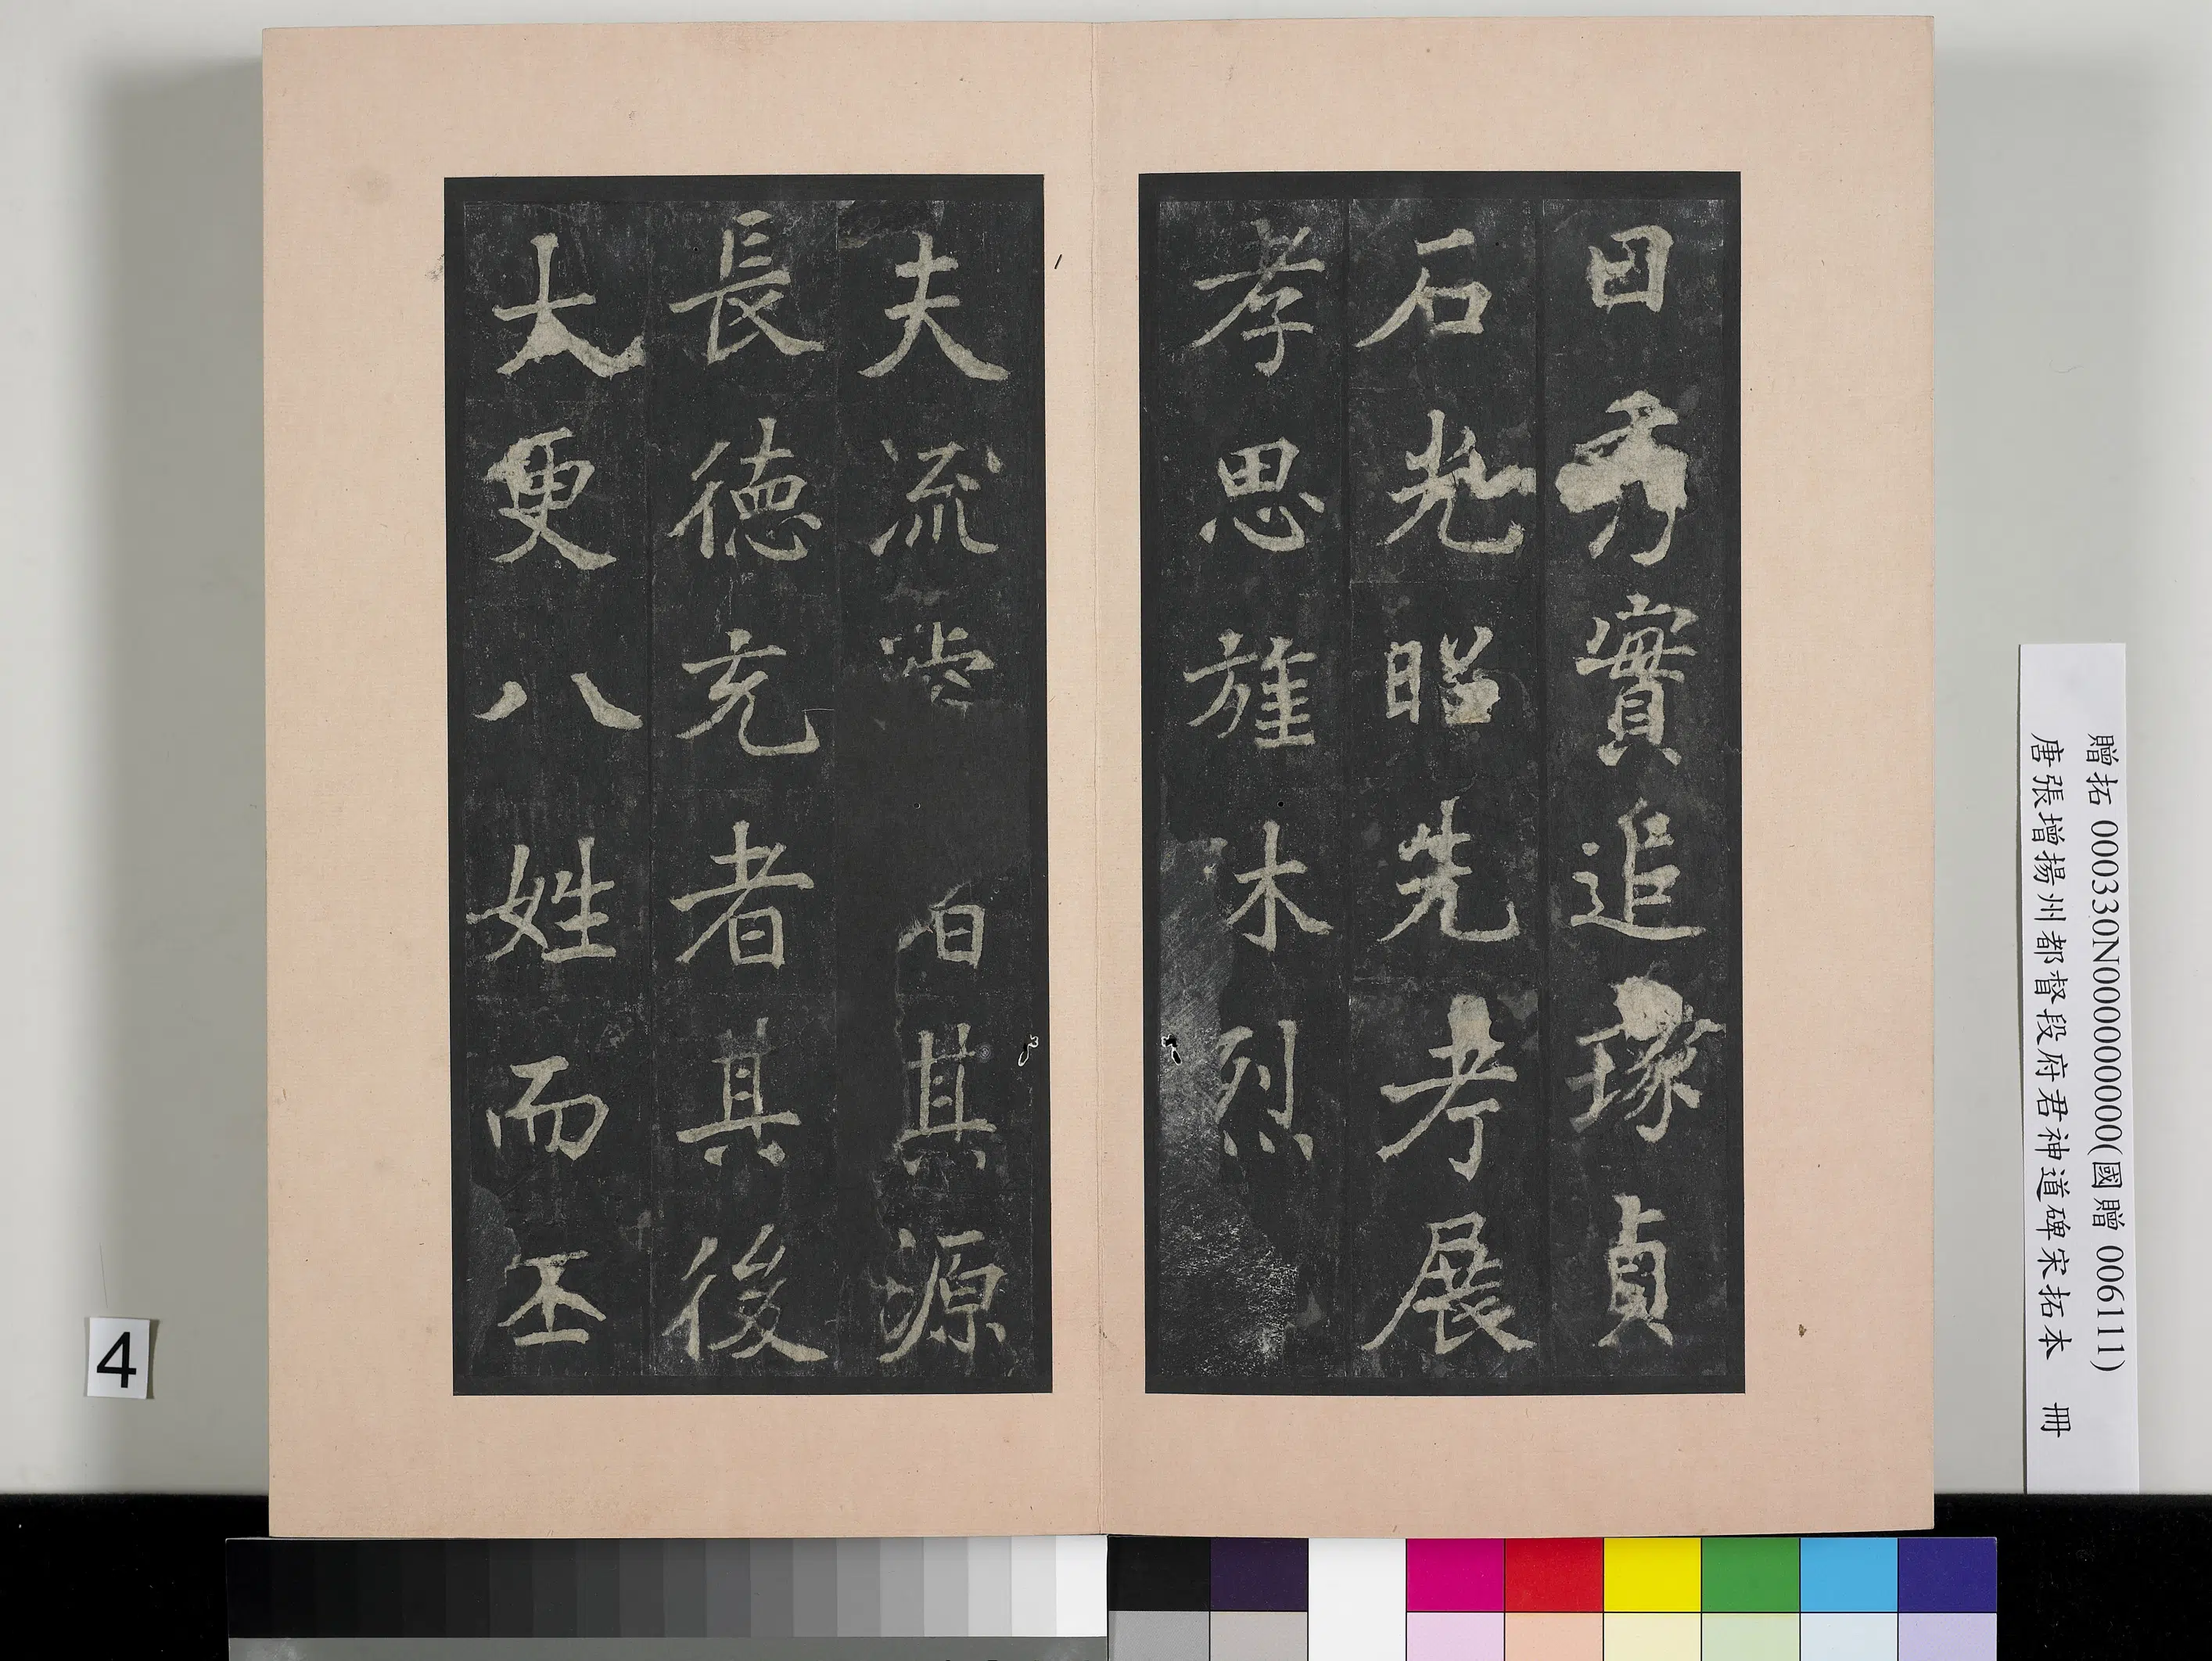 日秀實追琢貞
石光昭先考展
孝思旌木烈
夫流
其源
長德充者其後
大更八姓而丕
贈拓 000330N000000000(國贈 006111)
唐張增揚州都督段府君神道碑宋拓本 冊
4